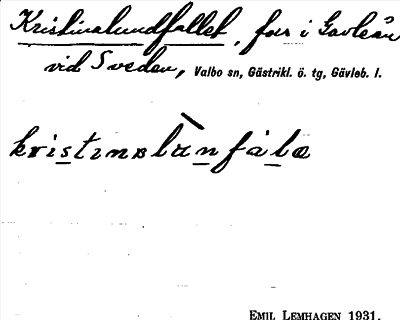 Kristinalundfallet, fors i Gavleån
vid Sveden, Valbo sn, Gästrikl. ö. tg, Gävleb. l.
kristinaslunfàlæ
EMIL LEMHAGEN 1931.